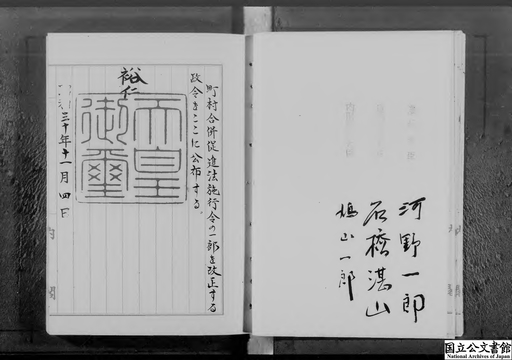 町村合併促進法施行令の一部を改正する
政令をここに公布する。
裕仁
天皇
御璽
三十年十一月四日
内閣
河野一郎
石橋湛山
鳩山一郎
国立公文書館
National Archives of Japan